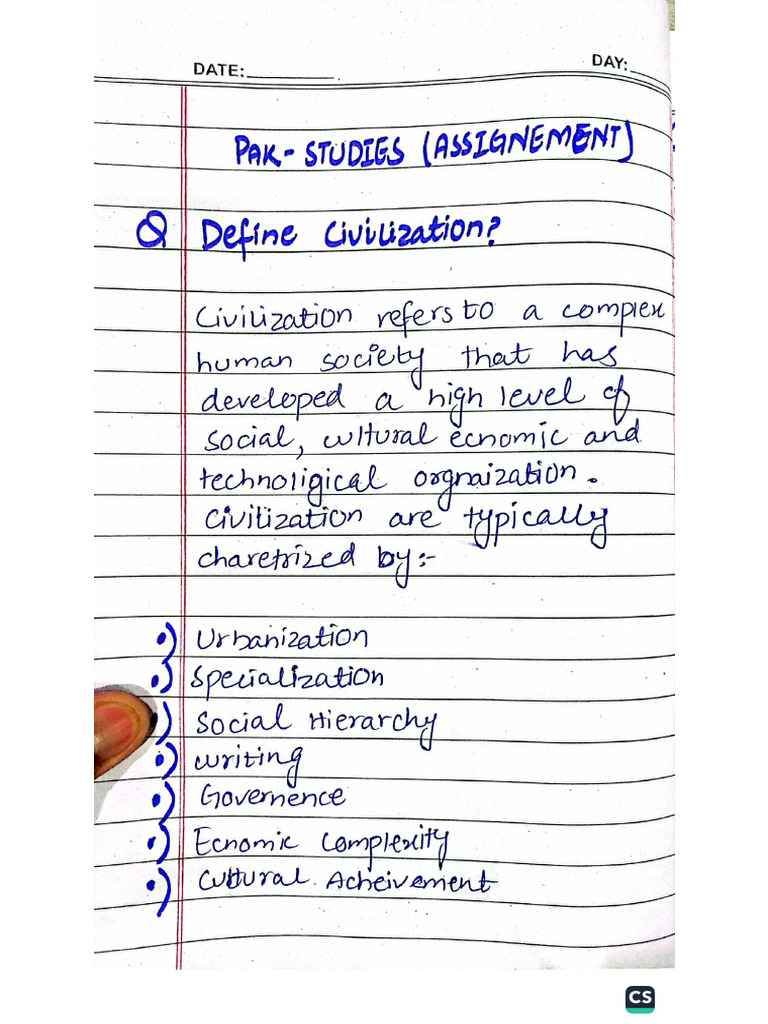 DATE:
DAY:
PAK-STUDIES (ASSIGNEMENT)
Q Define Civilization?
Civilization refers to a complex
human society that has
developed a high level of
social, cultural ecnomic and
technoligical orgnaization.
Civilization are typically
charetrized by:-
•) Urbanization
•) Specialization
) Social Hierarchy
•) Writing
•) Governence
•) Ecnomic Complexity
•) Cultural Acheivement
CS